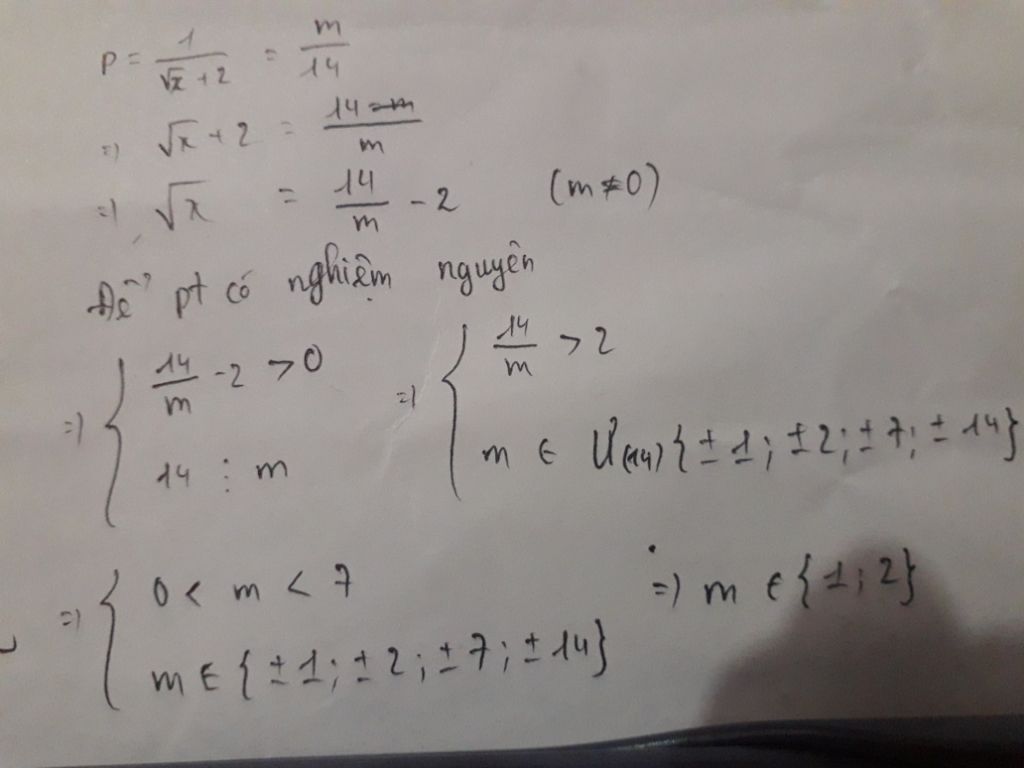 P = 1/(√x + 2) = m/14
=) √x + 2 = 14 - m/m
=) √x = 14/m - 2 (m ≠ 0)
Để pt có nghiệm nguyên
=) { 14/m - 2 > 0 =) { 14/m > 2
14 ⋮ m m ∈ Ư(14) {± 1; ± 2; ± 7; ± 14}
=) { 0 < m < 7 =) m ∈ {1; 2}
m ∈ {± 1; ± 2; ± 7; ± 14}